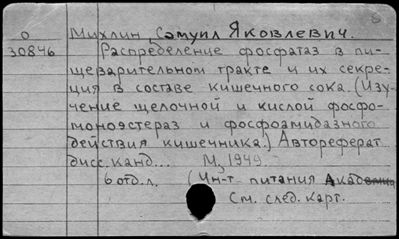 О Михлин, Самуил Яковлевич.
30846 Распределение фосфатаз в пи-
щеварительном тракте и их секре-
ция в составе кишечного сока. (Изу-
чение щелочной и кислой фосфо-
моноэстераз и фосфоамидазного
действия кишечника.) Автореферат
дисс. канд... М, 1949.
6 отд. л. (Ин-т питания Акад
См. след. карт.